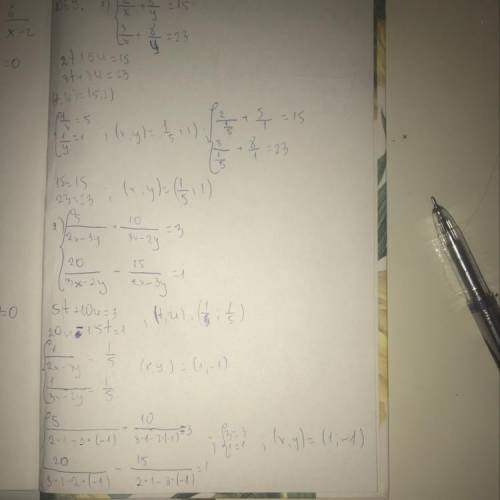 6/(x-2)
=0
1) { 2/x + 5/y = 15
3/x + 8/y = 23
2t+5u=15
3t+8u=23
(t,u)=(5,1)
{ 1/x = 5
1/y = 1 ; (x,y)=(1/5;1) ; { 2/(1/5) + 5/1 = 15
3/(1/5) + 8/1 = 23
15=15
23=23 ; (x,y)=(1/5,1)
2) { 5/(2x-3y) + 10/(3x-2y) = 3
20/(3x-2y) - 15/(2x-3y) = 1
=0
5t+10u=3
20u-15t=1 , (t,u),(1/5;1/5)
{ 1/(2x-3y) = 1/5
1/(3x-2y) = 1/5 (x,y)=(1,-1)
{ 5/(2·1-3·(-1)) + 10/(3·1-2·(-1)) = 3
20/(3·1-2·(-1)) - 15/(2·1-3·(-1)) = 1 ; { 3=3
1=1 , (x,y)=(1;-1)